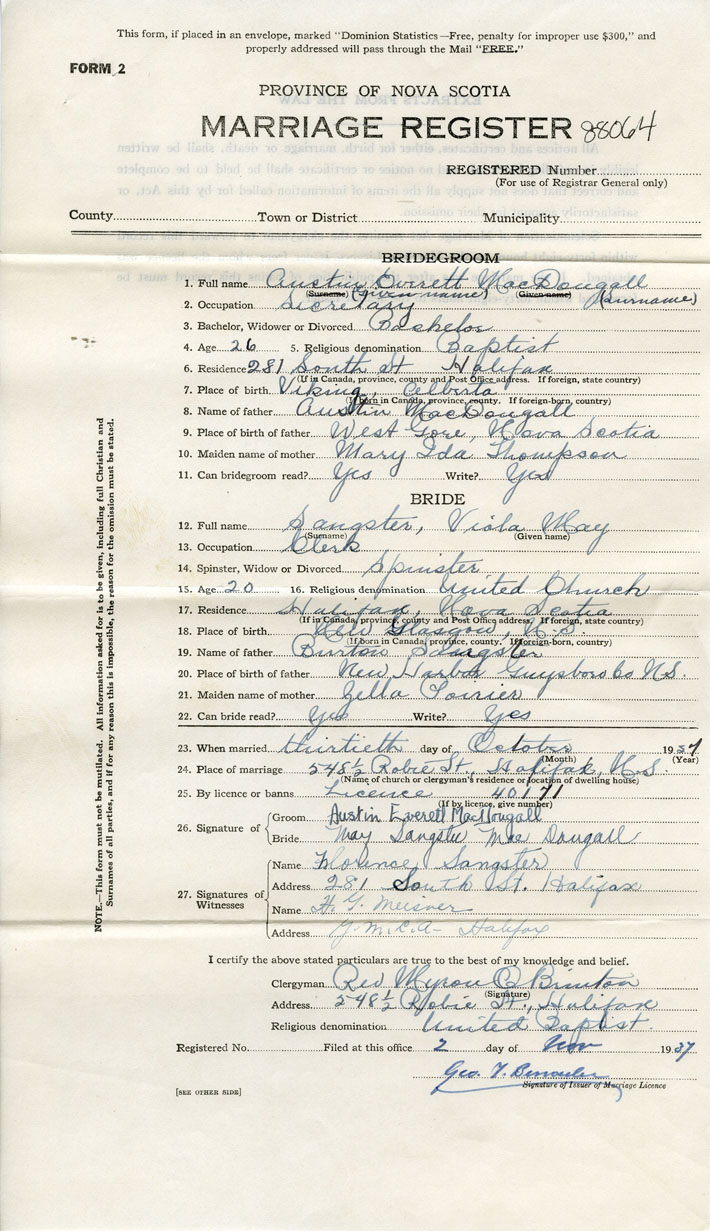 This form, if placed in an envelope, marked "Dominion Statistics—Free, penalty for improper use $300," and
properly addressed will pass through the Mail "FREE."
FORM 2
PROVINCE OF NOVA SCOTIA
MARRIAGE REGISTER 88064
REGISTERED Number
(For use of Registrar General only)
County Town or District Municipality
BRIDEGROOM
1. Full name Austin Everett MacDougall
(Surname) (Given name) (Given name) (Surname)
2. Occupation Secretary
3. Bachelor, Widower or Divorced Bachelor
4. Age 26 5. Religious denomination Baptist
6. Residence 281 South St Halifax
(If in Canada, province, county and Post Office address. If foreign, state country)
7. Place of birth Viking, Alberta
(If born in Canada, province, county. If foreign-born, country)
8. Name of father Austin MacDougall
9. Place of birth of father West Gore, Nova Scotia
10. Maiden name of mother Mary Ida Thompson
11. Can bridegroom read? Yes Write? Yes
BRIDE
12. Full name Sangster, Viola May
(Surname) (Given name)
13. Occupation Clerk
14. Spinster, Widow or Divorced Spinster
15. Age 20 16. Religious denomination United Church
17. Residence Halifax, Nova Scotia
(If in Canada, province, county and Post Office address. If foreign, state country)
18. Place of birth New Glasgow, N.S.
(If born in Canada, province, county. If foreign-born, country)
19. Name of father Burton Sangster
20. Place of birth of father New Harbor Guysboro Co N.S.
21. Maiden name of mother Zella Poirier
22. Can bride read? Yes Write? Yes
23. When married thirtieth day of October 1937
(Month) (Year)
24. Place of marriage 548½ Robie St., Halifax, N.S.
(Name of church or clergyman's residence or location of dwelling house)
25. By licence or banns Licence 40171
(If by licence, give number)
26. Signature of
Groom Austin Everett MacDougall
Bride May Sangster MacDougall
27. Signatures of Witnesses
Name Florence Sangster
Address 281 South St. Halifax
Name H. G. Meisner
Address Y.M.C.A- Halifax
I certify the above stated particulars are true to the best of my knowledge and belief.
Clergyman Rev Myron O Brinton
(Signature)
Address 548½ Robie St., Halifax
Religious denomination United Baptist
Registered No. Filed at this office 2 day of Nov 1937
Geo. T.
Signature of Issuer of Marriage Licence
[SEE OTHER SIDE]
NOTE.—This form must not be mutilated. All information asked for is to be given, including full Christian and
Surnames of all parties, and if for any reason this is impossible, the reason for the omission must be stated.